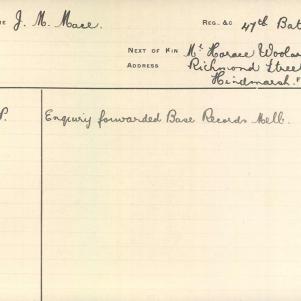 J. M. Mace.
REG. &C 47th Bat
NEXT OF KIN Mr Horace
ADDRESS Richmond Street
Hindmarsh.
P. Enquiry forwarded Base Records Melb.